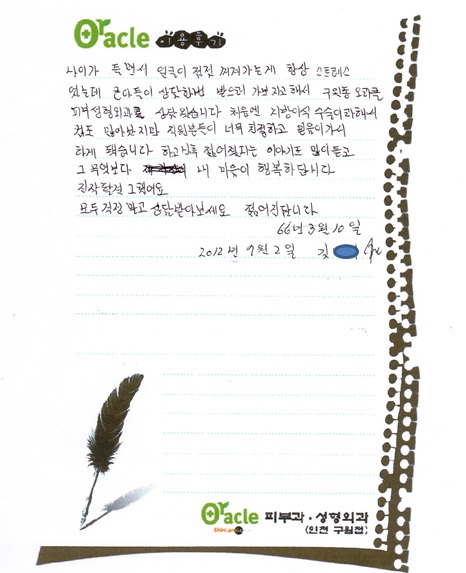 Oracle 이용후기
나이가 들면서 얼굴이 점점 쳐져가는게 항상 스트레스
였는데 큰아들이 상담한번 받으러 가보자고해서 구월동 오라클
피부성형외과를 상담왔습니다 처음엔 지방이식 수술이라해서
겁도 많아보지만 직원분들이 너무 친절하고 믿음이가서
하게 됐습니다 하고난후 젊어졌다는 이야기도 많이듣고
그 무엇보다 내 마음이 행복하답니다
진작할걸 그랬어요
모두 걱정 말고 상담받아보세요 젊어진답니다
66년 3월 10일
2012년 9월 2일 김
Oracle 피부과·성형외과
Skincare
(인천 구월점)